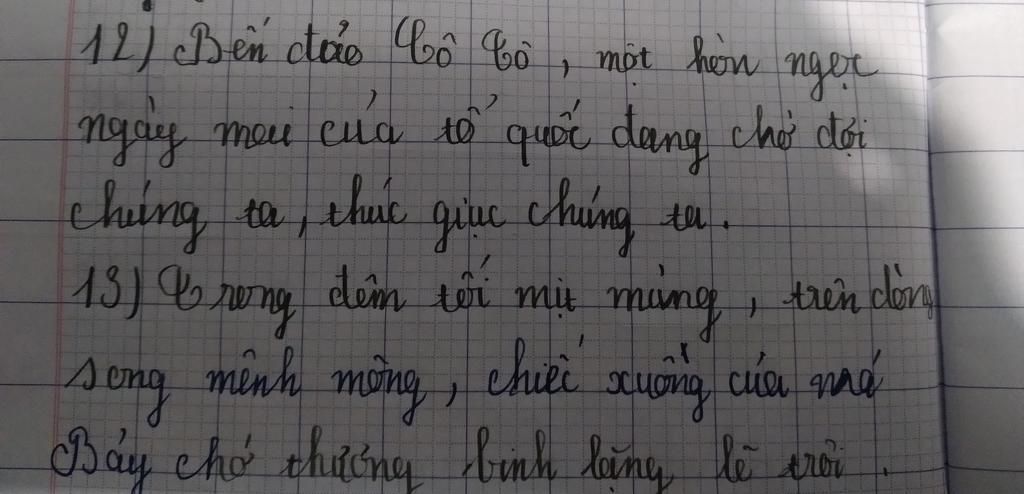 12) Bến đảo Cô Tô, một hòn ngọc
ngày mai của tổ quốc đang chờ đợi
chúng ta, thúc giục chúng ta.
13) Trong đêm tối mịt mùng, trên dòng
sông mênh mông, chiếc xuồng của má
Bảy chở thương binh lặng lẽ trôi.